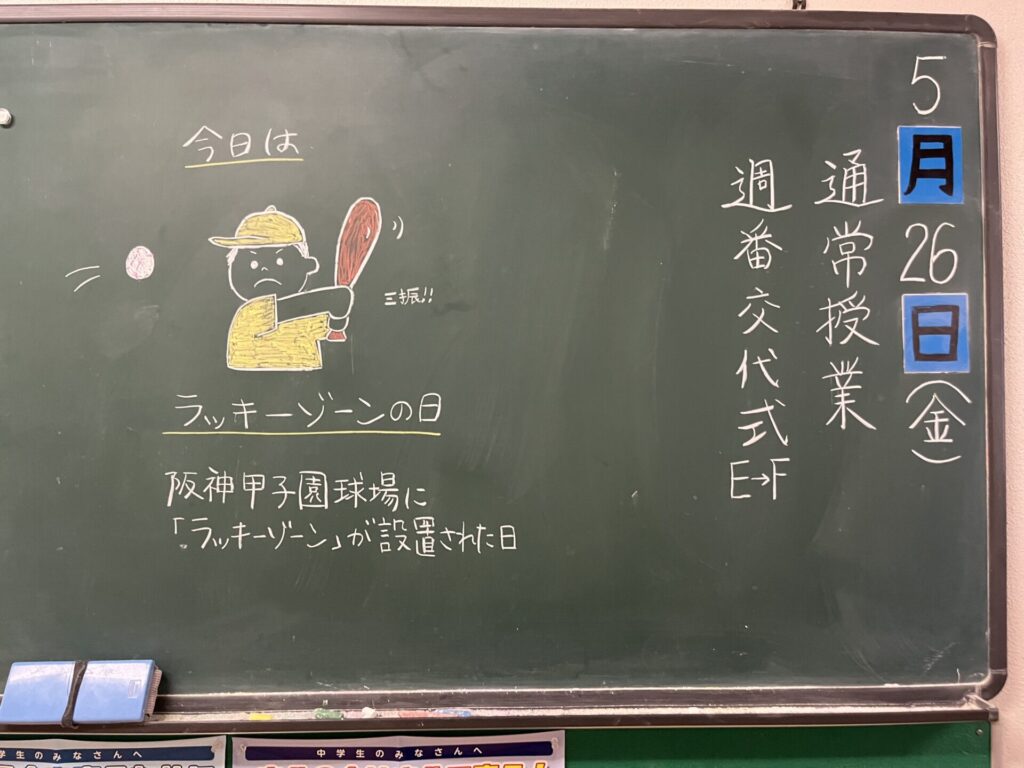 5月26日(金)
通常授業
週番交代式E→F
今日は
三振!!
ラッキーゾーンの日
阪神甲子園球場に
「ラッキーゾーン」が設置された日
学生のみなさんへ
中学生のみなさんへ